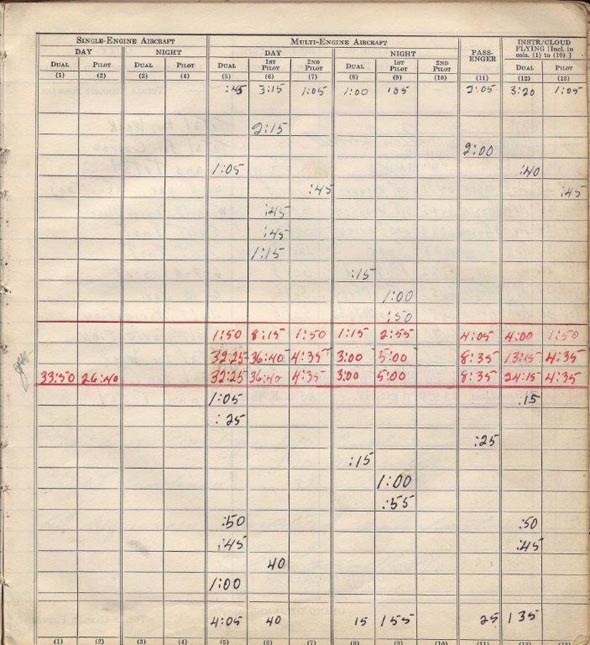 SINGLE-ENGINE AIRCRAFT MULTI-ENGINE AIRCRAFT INSTR/CLOUD
FLYING [Incl. in
cols. (1) to (10)]
DAY NIGHT DAY NIGHT PASS-
ENGER
DUAL PILOT DUAL PILOT DUAL 1ST PILOT 2ND PILOT DUAL 1ST PILOT 2ND PILOT DUAL PILOT
(1) (2) (3) (4) (5) (6) (7) (8) (9) (10) (11) (12) (13)
:45 3:15 1:05 1:00 :05 2:05 3:20 1:05
2:15
2:00
1:05 :40
:45 :45
:45
:45
1:15
:15
1:00
:50
1:50 8:15 1:50 1:15 2:55 4:05 4:00 1:50
32:25 36:40 4:35 3:00 5:00 8:35 13:15 4:35
33:50 26:40 32:25 36:40 4:35 3:00 5:00 8:35 24:15 4:35
1:05 :15
:25
:25
:15
1:00
:55
:50 :50
:45 :45
40
1:00
4:05 40 15 1 55 25 1 35
(1) (2) (3) (4) (5) (6) (7) (8) (9) (10) (11) (12) (13)